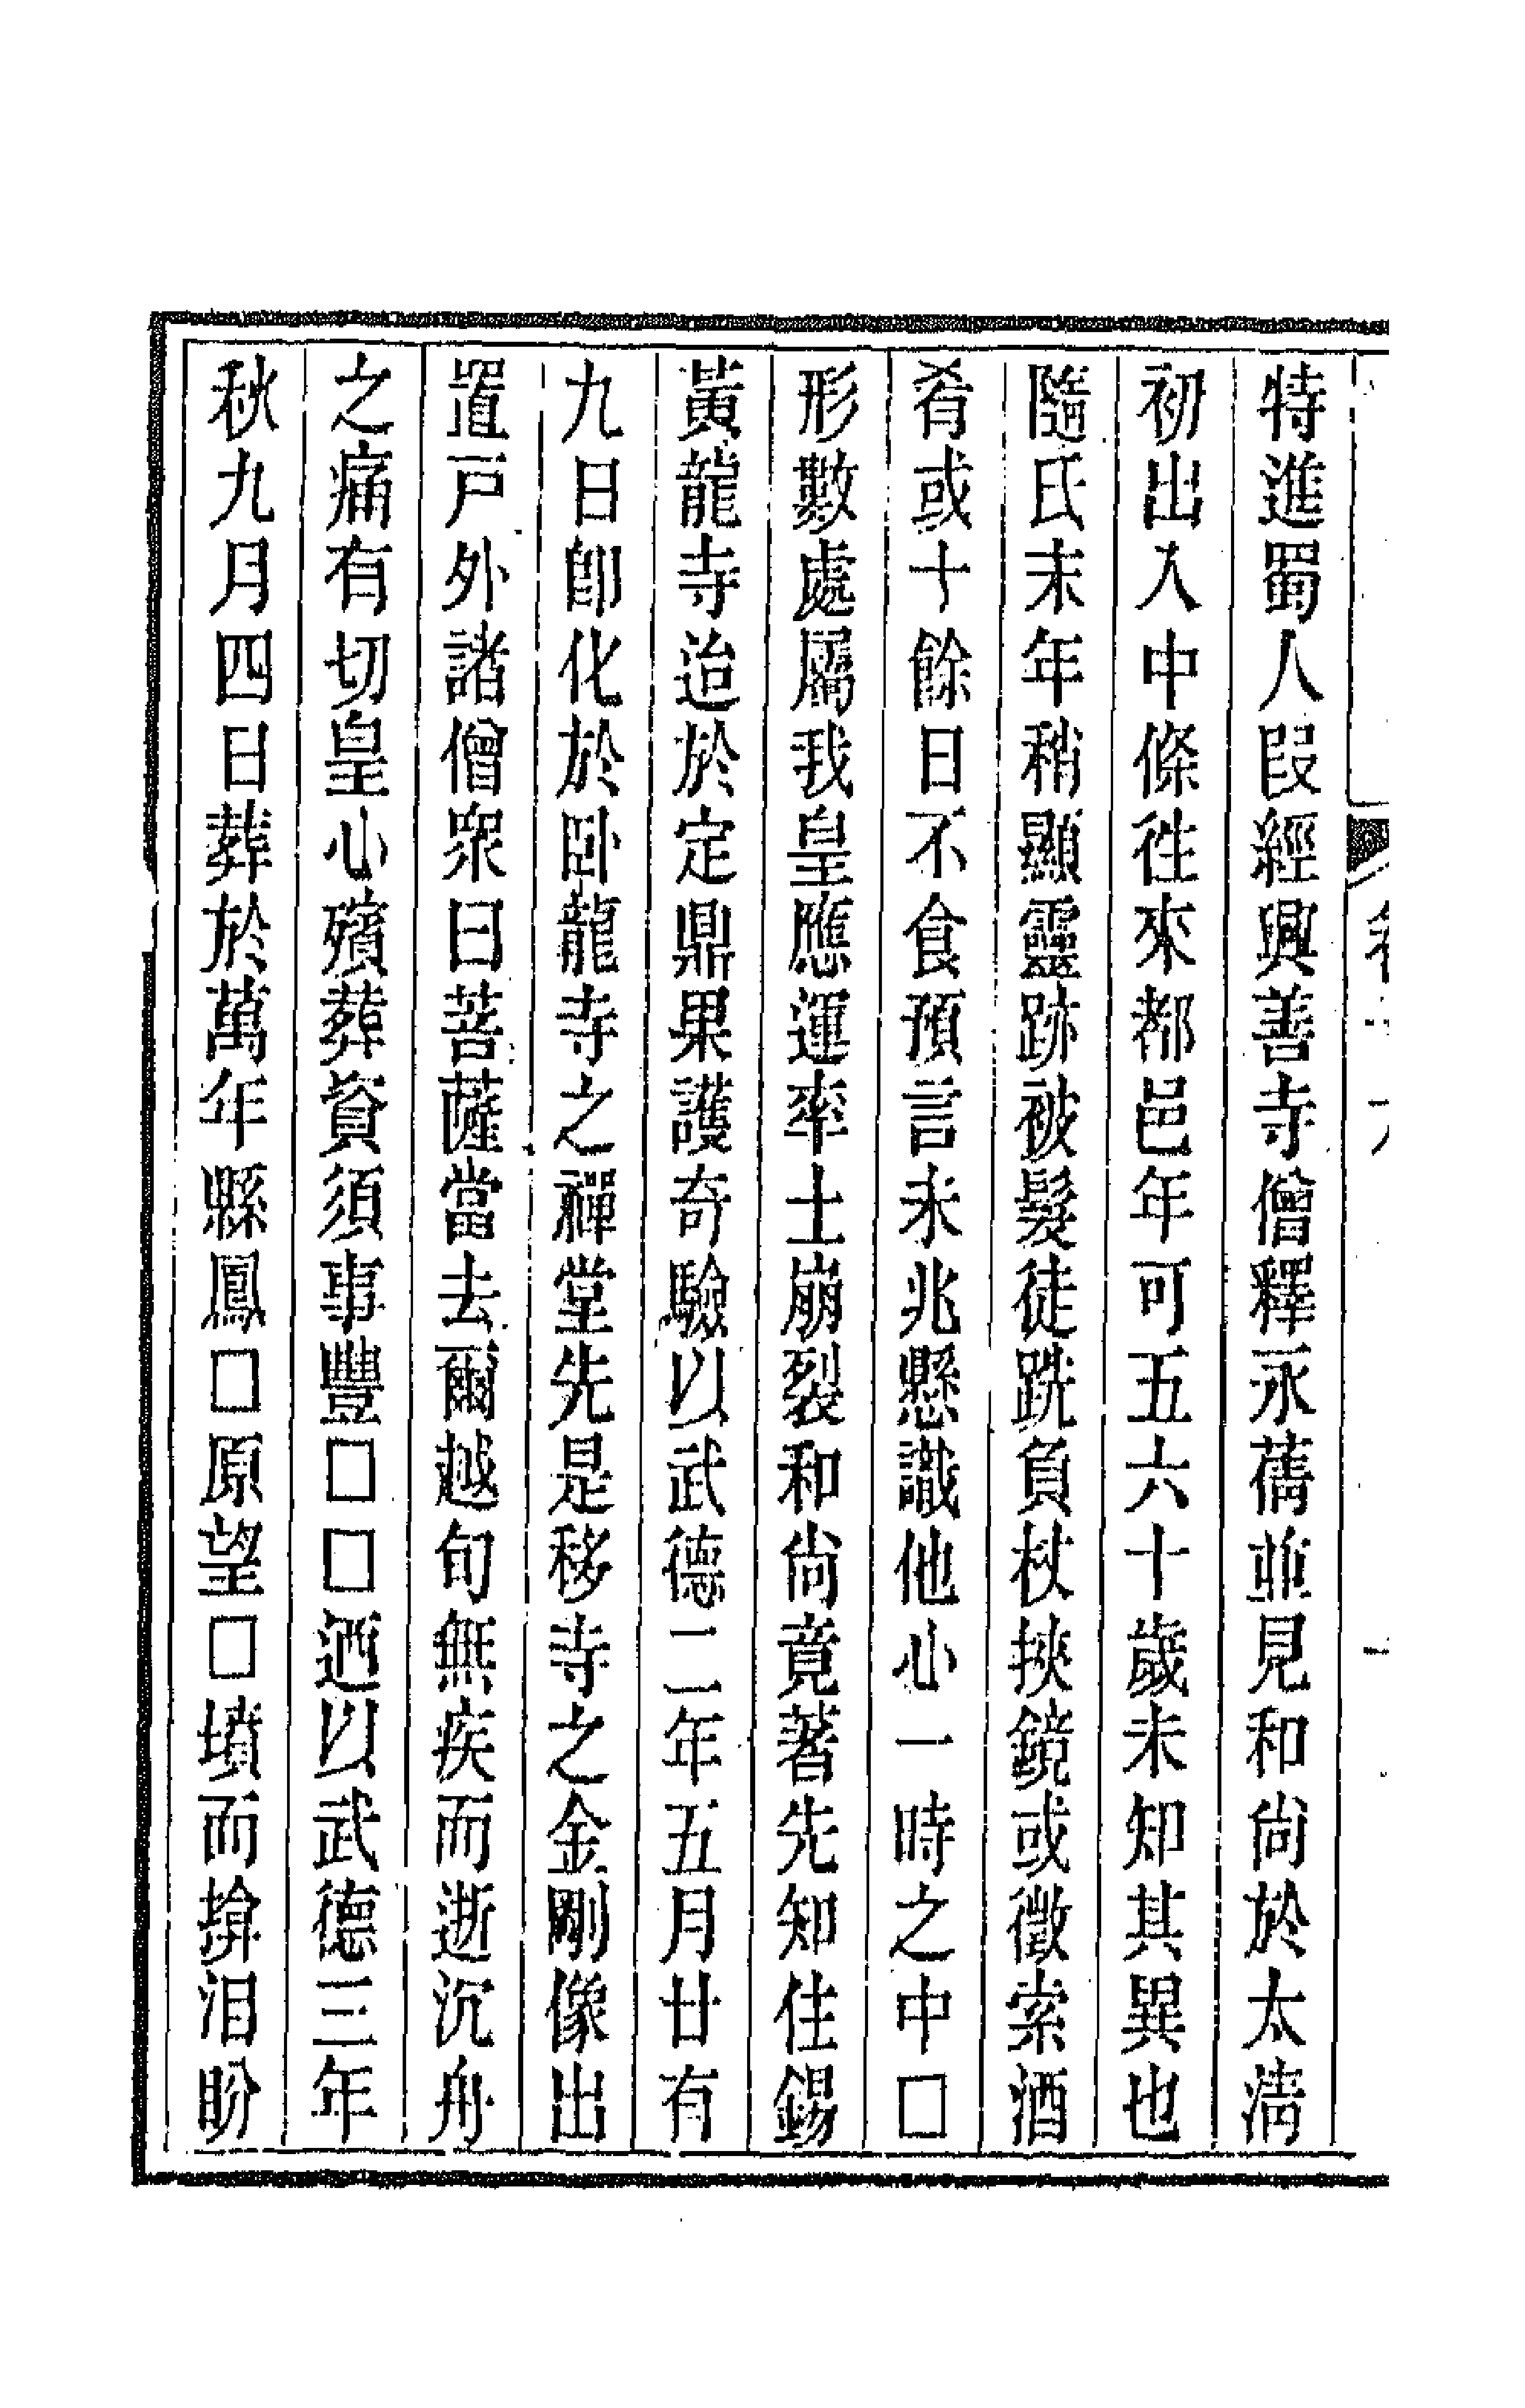 特進蜀人段經興善寺僧釋永舊並見和尙於太淸
初出入中條往來都邑年可五六十歲未知其異也
隨氏末年稍顯靈跡被髮徒跣負杖挾鏡或徵索酒
肴或十餘日不食預言未兆懸識他心一時之中□
形數處屬我皇應運率土崩裂和尙竟著先知住錫
黃龍寺迨於定鼎果護奇驗以武德二年五月廿有
九日卽化於卧龍寺之禪堂先是移寺之金剛像出
置戸外諸僧眾曰菩薩當去爾越旬無疾而逝沉舟
之痛有切皇心殯葬資須事豐□□迺以武德三年
秋九月四日葬於萬年縣鳳□原望□墳而揜淚盼